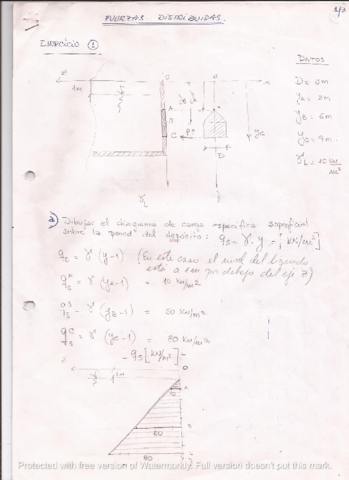 FUERZAS DISTRIBUIDAS.
1/3
EJERCICIO 1
DATOS
1m
D = 6m
yA = 2m
A
B
yB = 6m
C
yC
yC = 9m
D
γL = 10 kN/m³
γL
a) Dibujar el diagrama de carga específica superficial
sobre la "pared" del depósito: qs = γ · y = [kN/m²]
qs = γ (y-1) (En este caso el nivel del líquido
está a 1m por debajo del eje z)
qsA = γ (yA-1) = 10 kN/m2
qsB = γ (yB-1) = 50 kN/m2
qsC = γ (yC-1) = 80 kN/m2
qs [kN/m²]
1m
10
50
80
Protected with free version of Watermarkly. Full version doesn't put this mark.